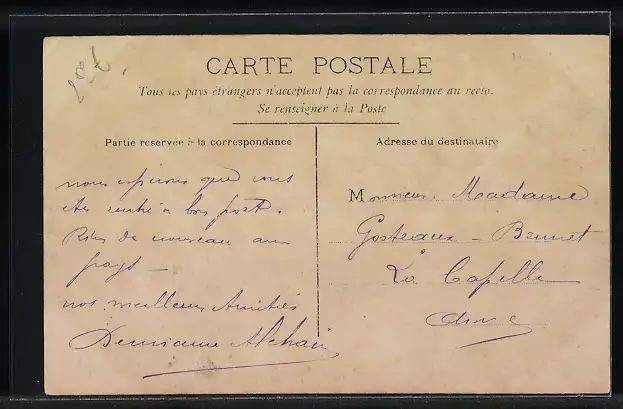 CARTE POSTALE
Tous les pays étrangers n'acceptent pas la correspondance au recto.
Se renseigner à la Poste
Partie reservée à la correspondance
nous espérons que vous
êtes rentré à bon port.
Rien de nouveau au
pays —
nos meilleurs Amitiés
Adresse du destinataire
Monsieur. Madame
Gosteaux - Bennet
La Capelle
Aisne